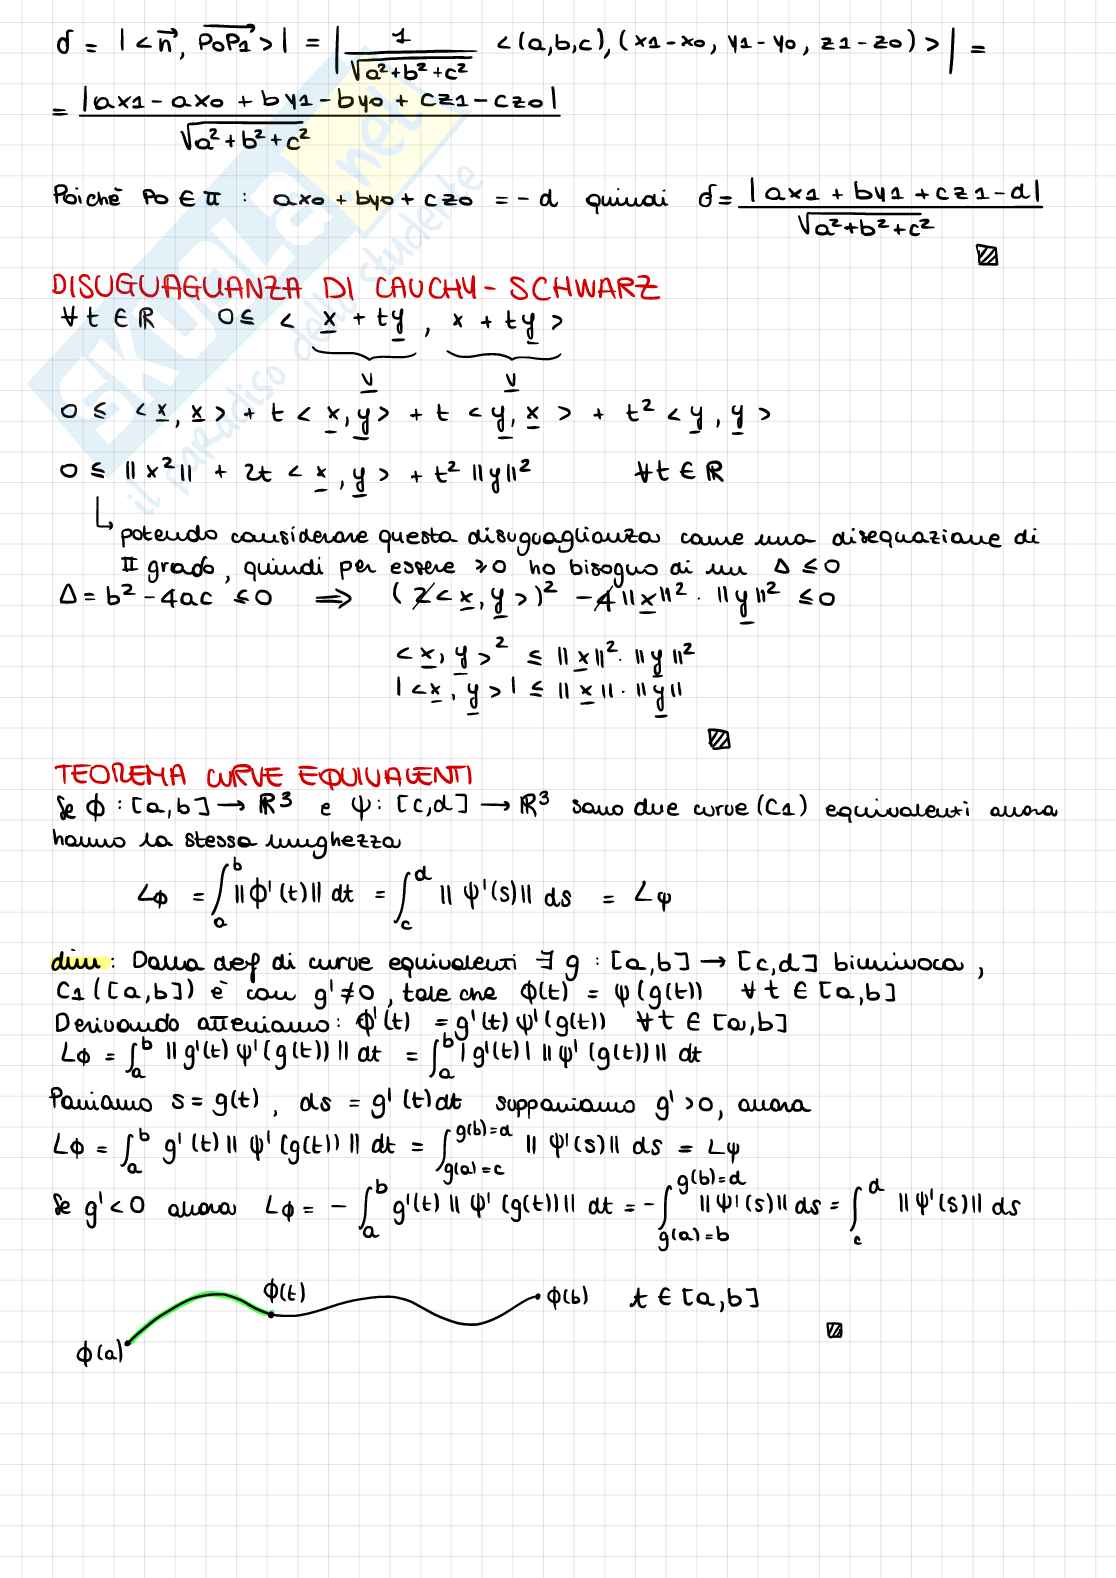 d = |<n⃗, P₀P₁>| = | 1/√(a²+b²+c²) <(a,b,c),(x1-x0, y1-y0, z1-z0)> | =
= |ax1-ax0 + by1-by0 + cz1-cz0| / √(a²+b²+c²)
Poichè P0 ∈ π : ax0 + by0 + cz0 = -d quindi d = |ax1 + by1 + cz1-d| / √(a²+b²+c²)
DISUGUAGUANZA DI CAUCHY-SCHWARZ
∀t ∈ ℝ 0≤ < x + ty , x + ty >
v v
0 ≤ <x,x> + t <x,y> + t <y,x> + t² <y,y>
0 ≤ ||x²|| + 2t <x,y> + t² ||y||² ∀t ∈ ℝ
↳ potendo considerare questa disuguaglianza come una disequazione di
II grado, quindi per essere ≥0 ho bisogno di un Δ ≤ 0
Δ = b² - 4ac ≤0 ⟹ (2<x,y>)² - 4||x||² · ||y||² ≤0
<x,y>² ≤ ||x||² · ||y||²
|<x,y>| ≤ ||x|| · ||y||
TEOREMA CURVE EQUIVALENTI
Se ϕ : [a,b] → ℝ³ e ψ : [c,d] → ℝ³ sono due curve (C1) equivalenti allora
hanno la stessa lunghezza
Lϕ = ∫ₐᵇ ||ϕ'(t)|| dt = ∫_c^d ||ψ'(s)|| ds = Lψ
dim : Dalla def di curve equivalenti ∃ g : [a,b] → [c,d] biunivoca,
C1([a,b]) è con g' ≠ 0, tale che ϕ(t) = ψ(g(t)) ∀t ∈ [a,b]
Derivando otteniamo: ϕ'(t) = g'(t) ψ'(g(t)) ∀t ∈ [a,b]
Lϕ = ∫ₐᵇ ||g'(t) ψ'(g(t))|| dt = ∫ₐᵇ |g'(t)| ||ψ'(g(t))|| dt
Poniamo s = g(t), ds = g'(t)dt supponiamo g' >0, allora
Lϕ = ∫ₐᵇ g'(t) ||ψ'(g(t))|| dt = ∫_{g(a)=c}^{g(b)=d} ||ψ'(s)|| ds = Lψ
Se g' <0 allora Lϕ = - ∫ₐᵇ g'(t) ||ψ'(g(t))|| dt = - ∫_{g(a)=b}^{g(b)=d} ||ψ'(s)|| ds = ∫_c^d ||ψ'(s)|| ds
ϕ(t)
ϕ(b) t ∈ [a,b]
ϕ(a)
SKUOLA.net
il paradiso dello studente